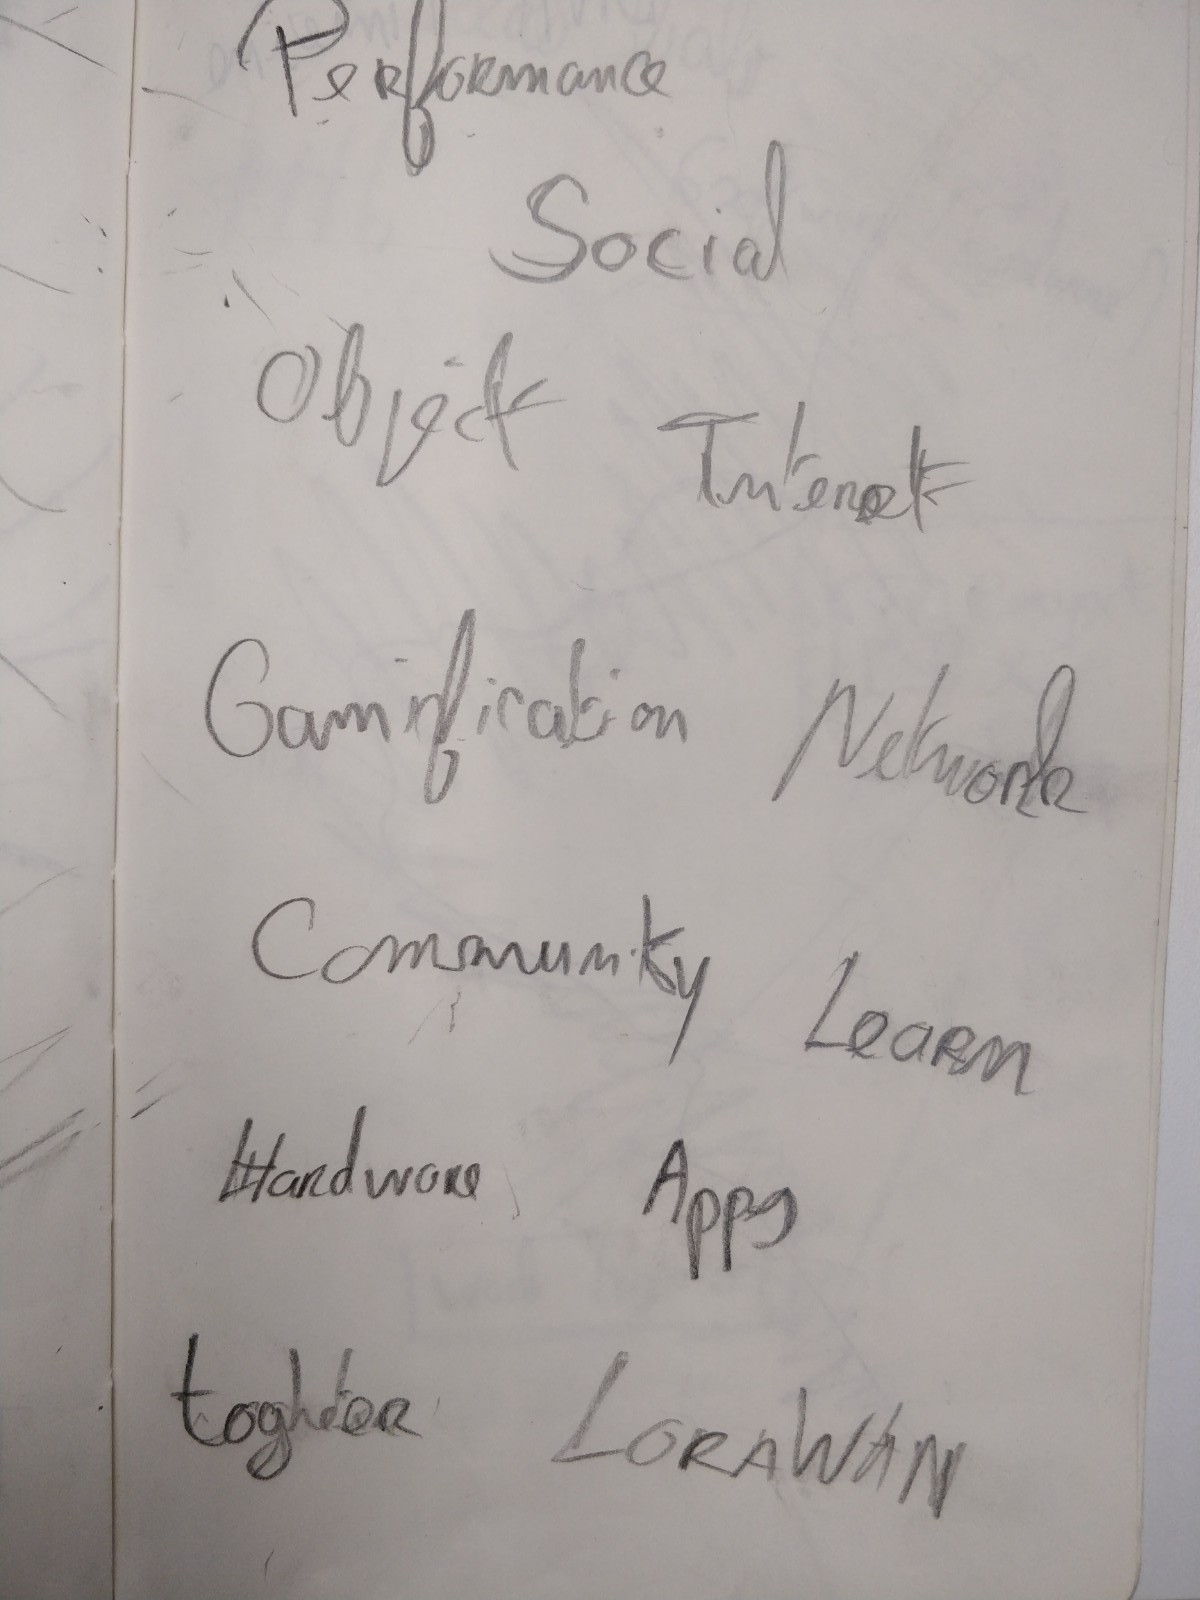 Performance
Social
Object
Internet
Gamification Network
Community
Learn
Hardware Apps
toghter LORAWAN